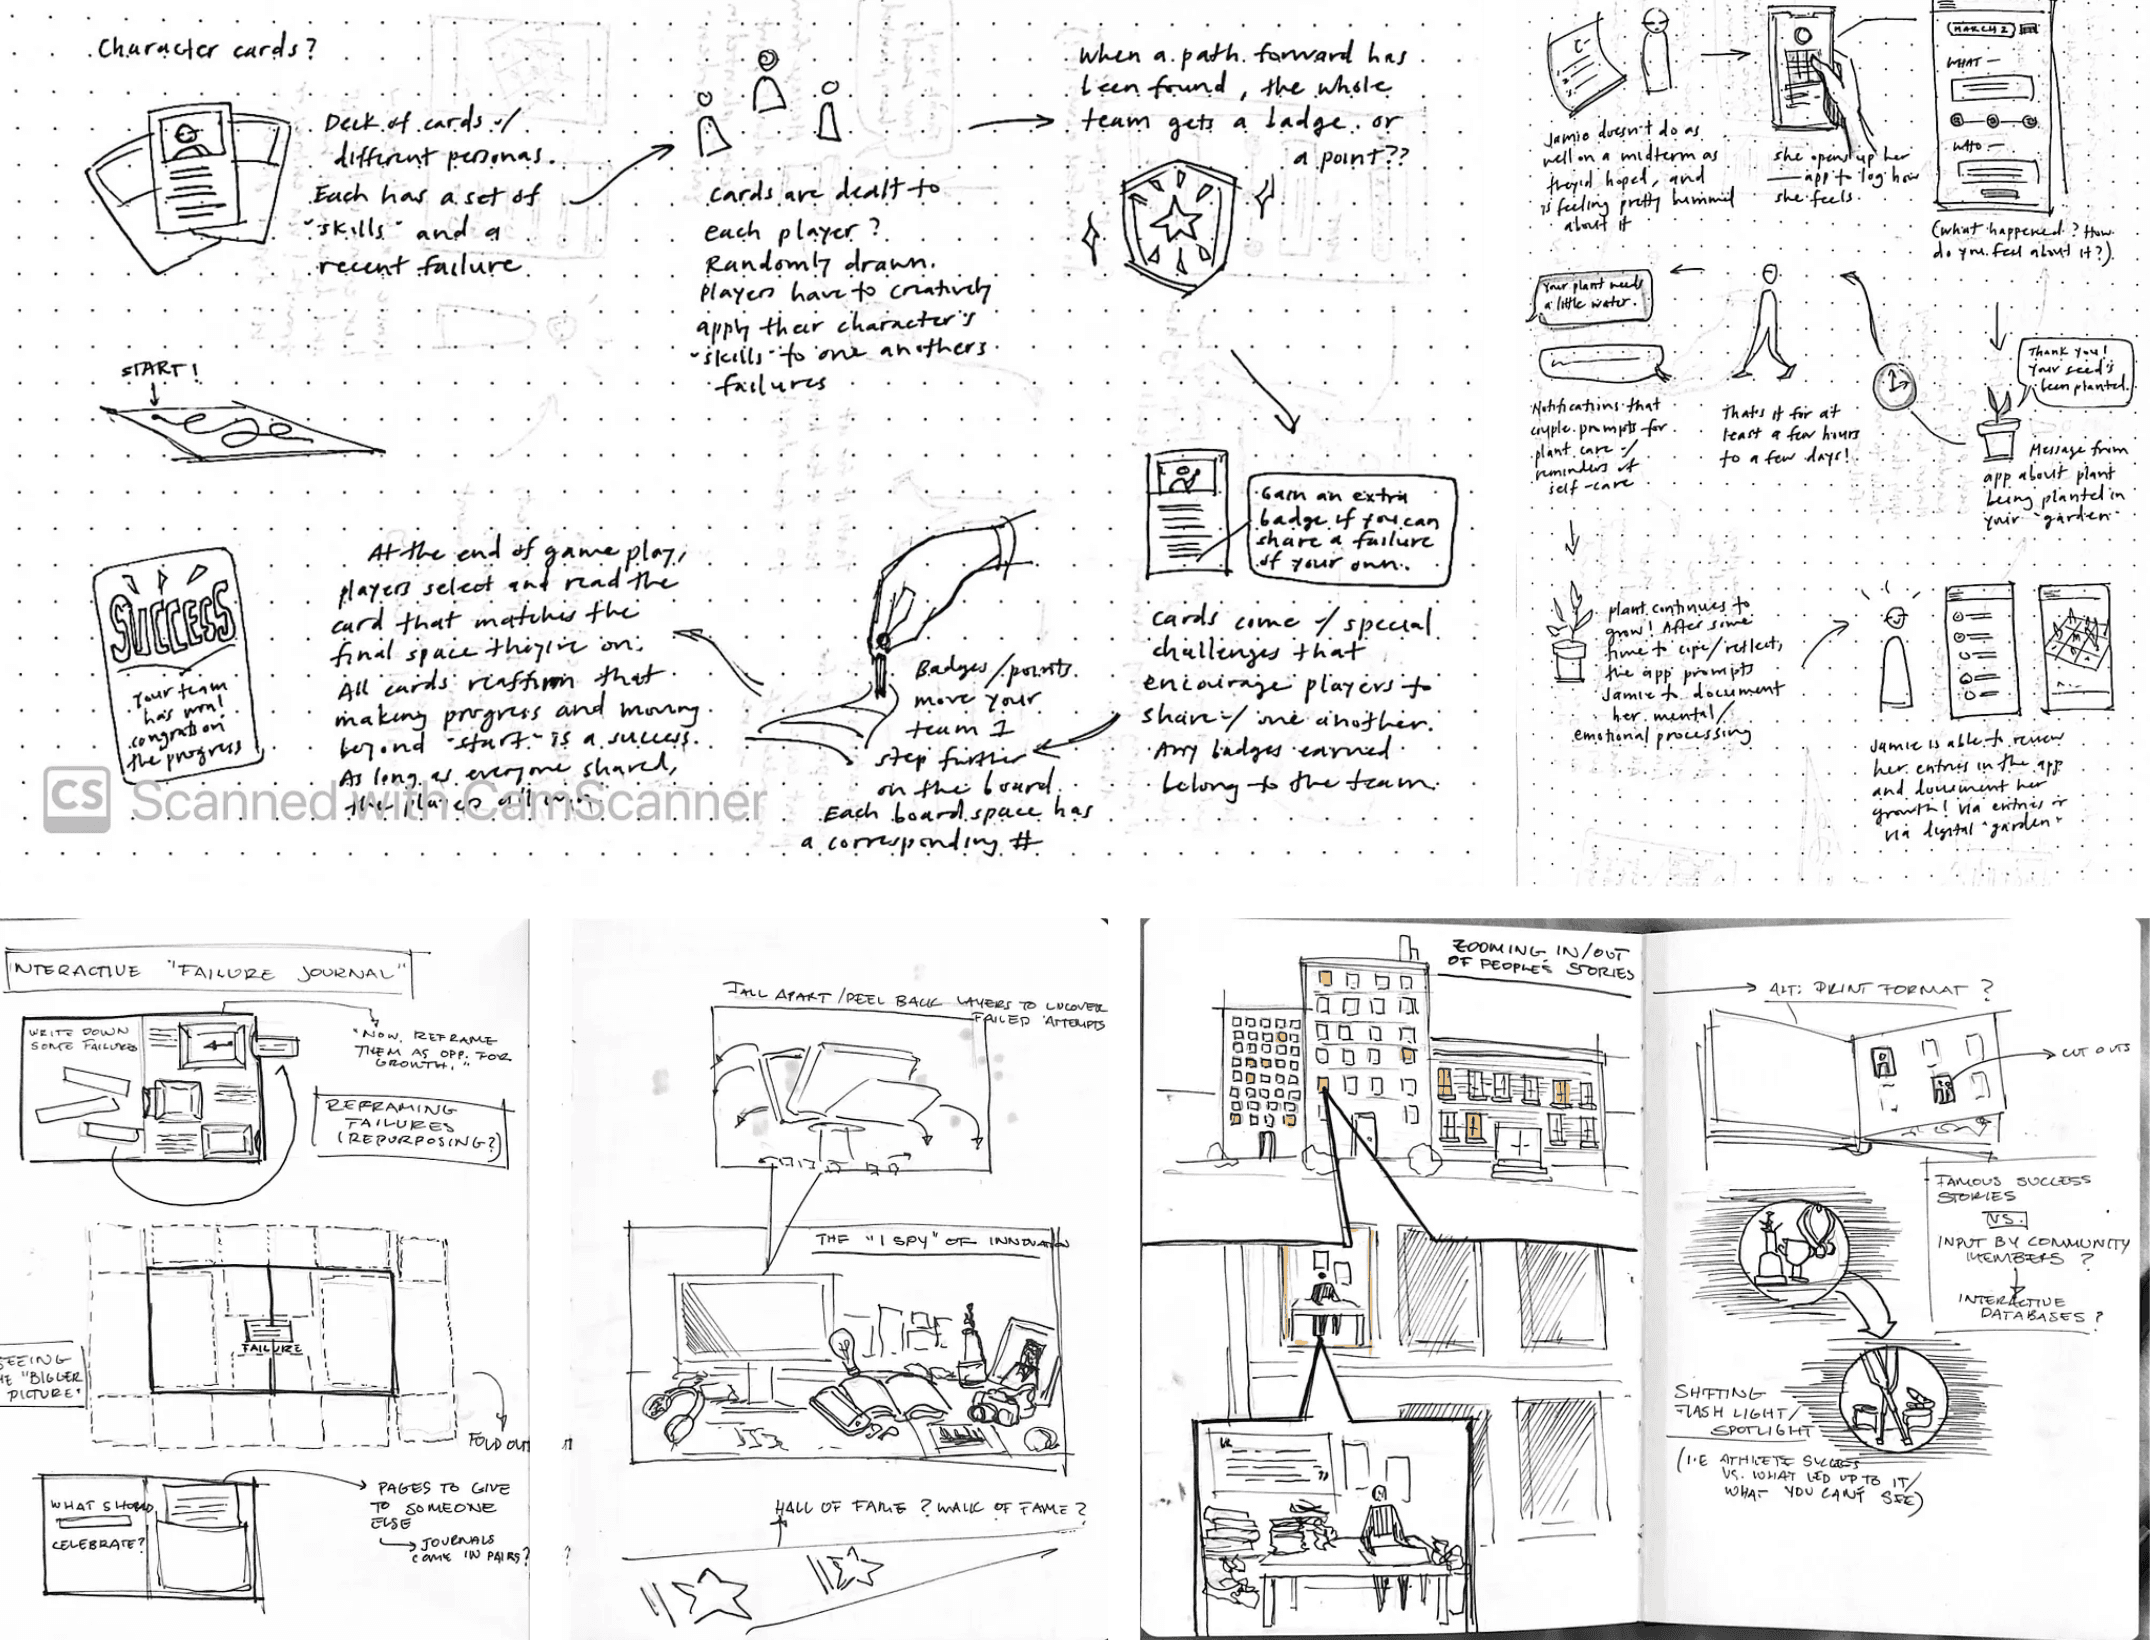 Character cards?
Deck of cards w/
different personas.
Each has a set of
"skills" and a
recent failure
cards are dealt to
each player?
Randomly drawn.
players have to creatively
apply their character's
"skills" to one anothers
failures
when a path forward has
been found, the whole
team gets a badge or
a point??
START!
Gain an extra
badge if you can
share a failure
of your own.
cards come w/ special
challenges that
encourage players to
share w/ one another.
Any badges earned
belong to the team.
Badges/points
move your
team 1
step further
on the board.
Each board space has
a corresponding #
At the end of game play,
players select and read the
card that matches the
final space they're on.
All cards reaffirm that
making progress and moving
beyond "start" is a success.
As long as everyone shared,
the players all win.
SUCCESS
Your team
has won!
congrats on
the progress
CS Scanned with CamScanner
Jamie doesn't do as
well on a midterm as
they'd hoped, and
is feeling pretty bummed
about it
she opens up her
___ app to log how
she feels.
MARCH 2
WHAT —
WHO —
(What happened? How
do you feel about it?)
Thank you!
Your seed's
been planted.
Message from
app about plant
being planted in
your "garden"
That's it for at
least a few hours
to a few days!
Your plant needs
a little water.
Notifications that
couple prompts for
plant care w/
reminders of
self-care
plant continues to
grow! After some
time to cope/reflect,
the app prompts
Jamie to document
her mental/
emotional processing
Jamie is able to review
her entries in the app
and document her
growth! via entries or
via digital "garden"
INTERACTIVE "FAILURE JOURNAL"
WRITE DOWN
SOME FAILURES
"NOW, REFRAME
THEM AS OPP. FOR
GROWTH."
REFRAMING
FAILURES
(REPURPOSING?)
FAILURE
SEEING
THE "BIGGER
PICTURE"
FOLD OUT
WHAT SHOULD
CELEBRATE?
PAGES TO GIVE
TO SOMEONE
ELSE
JOURNALS
COME IN PAIRS?
FALL APART/PEEL BACK LAYERS TO UNCOVER
FAILED ATTEMPTS
THE "I SPY" OF INNOVATION
HALL OF FAME? WALK OF FAME?
?
ZOOMING IN/OUT
OF PEOPLE'S STORIES
ALT: PRINT FORMAT?
CUT OUTS
FAMOUS SUCCESS
STORIES
VS.
INPUT BY COMMUNITY
MEMBERS?
INTERACTIVE
DATABASES?
SHIFTING
FLASH LIGHT/
SPOTLIGHT
(I.E ATHLETE SUCCESS
VS. WHAT LED UP TO IT/
WHAT YOU CAN'T SEE)